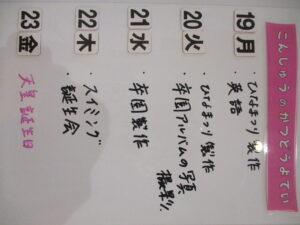 こんしゅうのかつどうよてい
19 月
・ひなまつり製作
・英語
20 火
・ひなまつり製作
・卒園アルバムの写真
撮影
21 水
・卒園製作
22 木
・スイミング
・誕生会
23 金
天皇誕生日